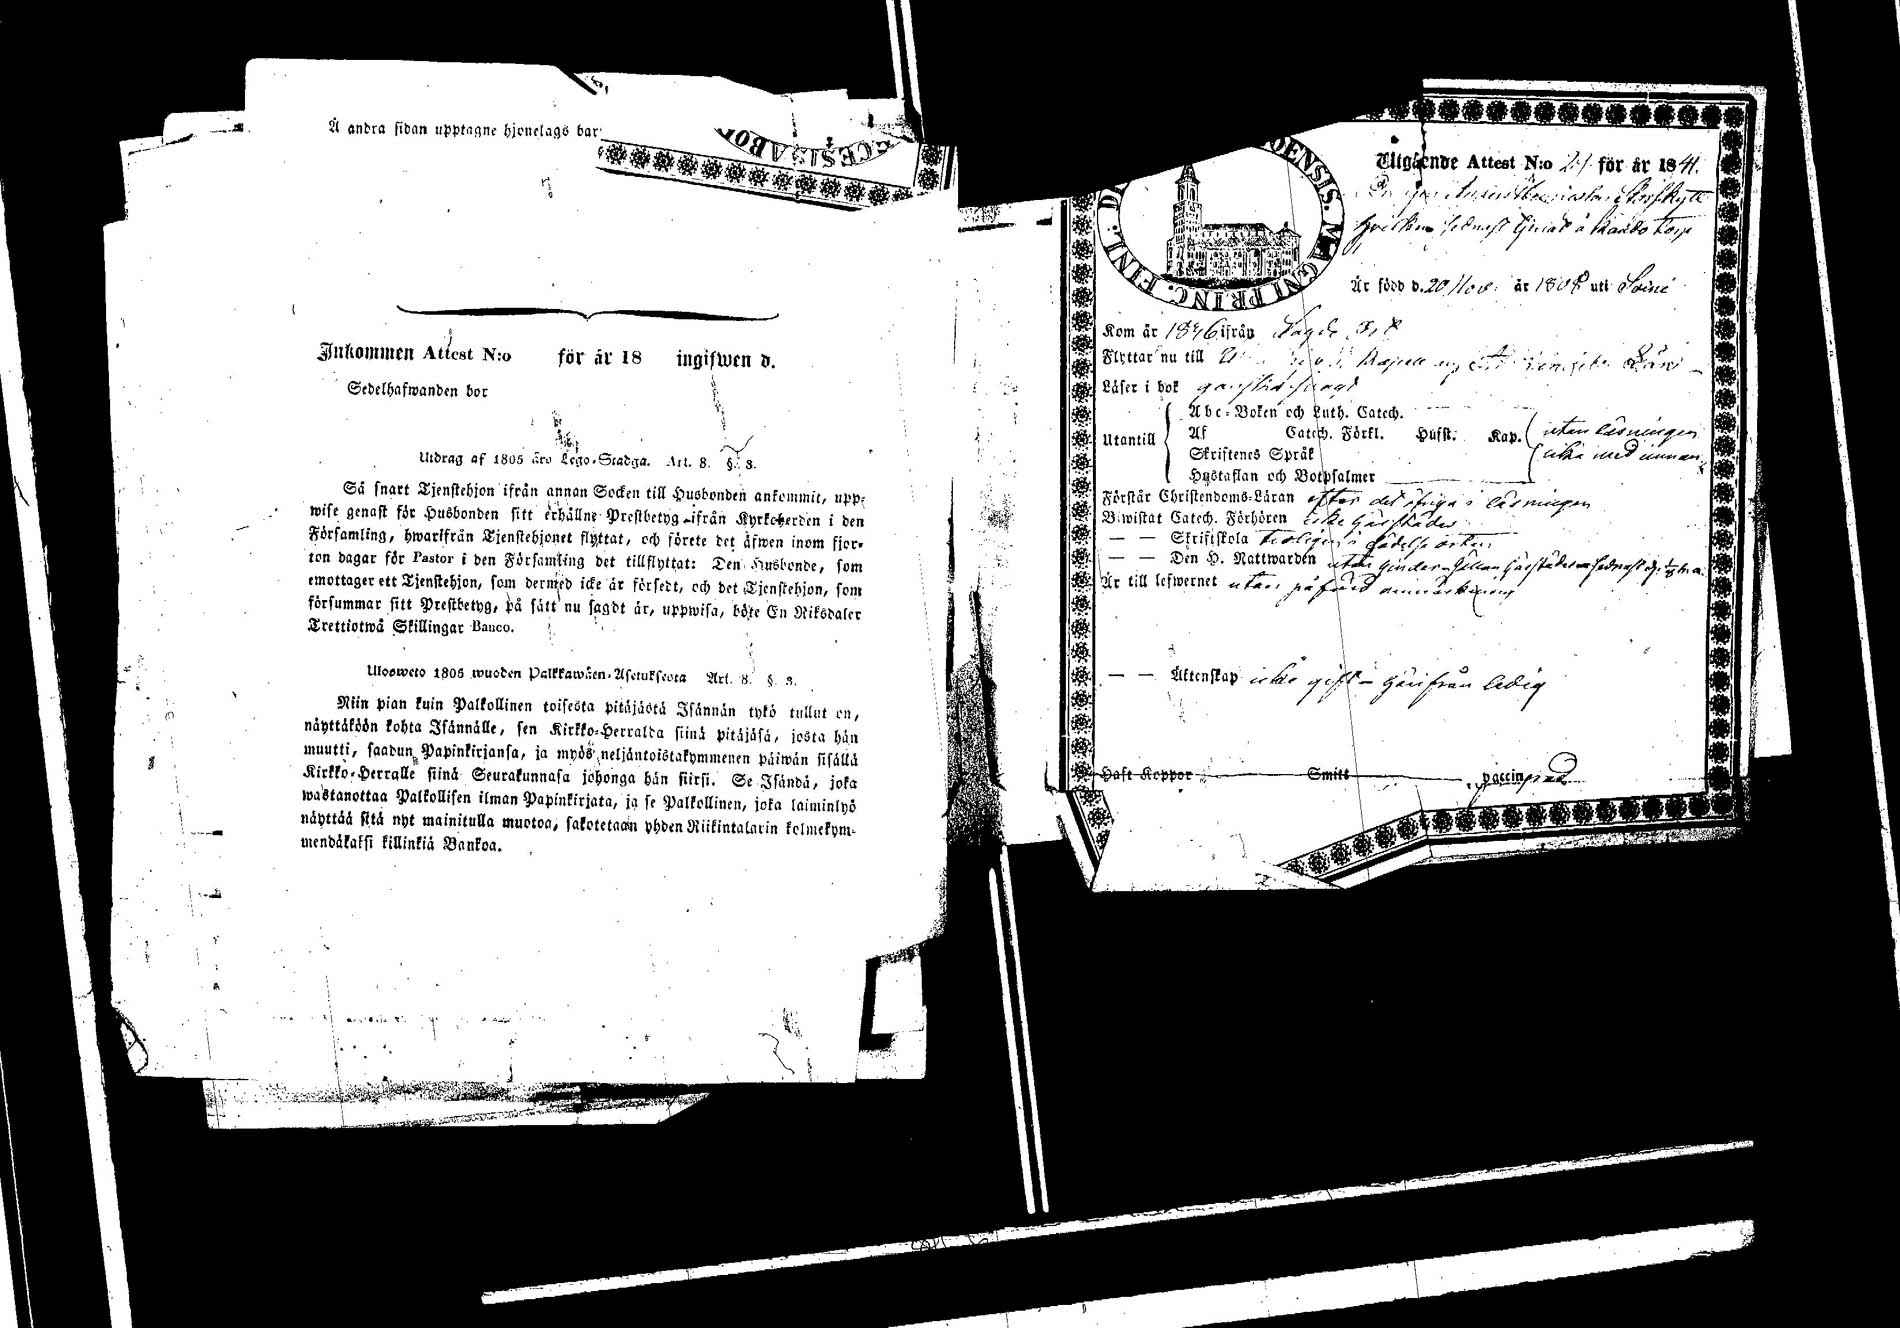 Å andra sidan upptagne hjonelags bar
CESIS ABO
Inkommen Attest N:o för år 18 ingifwen d.
Sedelhafwanden bor
Utdrag af 1805 års Lego-Stadga. Art. 8. §. 3.
Så snart Tjenstehjon ifrån annan Socken till Husbonden ankommit, upp-
wise genast för Husbonden sitt erhållne Prestbetyg ifrån Kyrkoherden i den
Församling, hwarifrån Tjenstehjonet flyttat, och förete det äfwen inom fjor-
ton dagar för Pastor i den Församling det tillflyttat: Den Husbonde, som
emottager ett Tjenstehjon, som dermed icke är försedt, och det Tjenstehjon, som
försummar sitt Prestbetyg, på sätt nu sagdt är, uppwisa, böte En Riksdaler
Trettiotwå Skillingar Banco.
Ulosweto 1805 wuoden Palkkawäen-Asetuksesta Art. 8. §. 3.
Niin pian kuin Palkollinen toisesta pitäjästä Isännän tykö tullut on,
näyttäköön kohta Isännälle, sen Kirkko-Herralda siinä pitäjäsä, josta hän
muutti, saadun Papinkirjansa, ja myös neljäntoistakymmenen päiwän sisällä
Kirkko-Herralle siinä Seurakunnasa johonga hän siirsi. Se Isändä, joka
wastanottaa Palkollisen ilman Papinkirjata, ja se Palkollinen, joka laiminlyö
näyttää sitä nyt mainitulla muotoa, sakotetaan yhden Riikintalarin kolmekym-
mendäkaksi killinkiä Bankoa.
OENSIS. MAGNI PRINC. FINL. D
Utgående Attest N:o 21 för år 1841.
Är född d. 20 Nov. år 1808 uti Soini
Kom år 1836 ifrån
Flyttar nu till
Läser i bok
Utantill
Abc-Boken och Luth. Catech.
Af Catech. Förkl. Hufst. Kap. utan läsningen
Skriftenes Språk
Hustaflan och Botpsalmer
Förstår Christendoms-Läran efter det öfriga i läsningen
Biwistat Catech. Förhören icke härstädes
— — Skriftskola troligen i födelse orten
— — Den H. Nattwarden
Är till lefwernet utan påförd anmärkning
— — Äktenskap icke gift – härifrån ledig
Haft Koppor Smitt vaccinerad